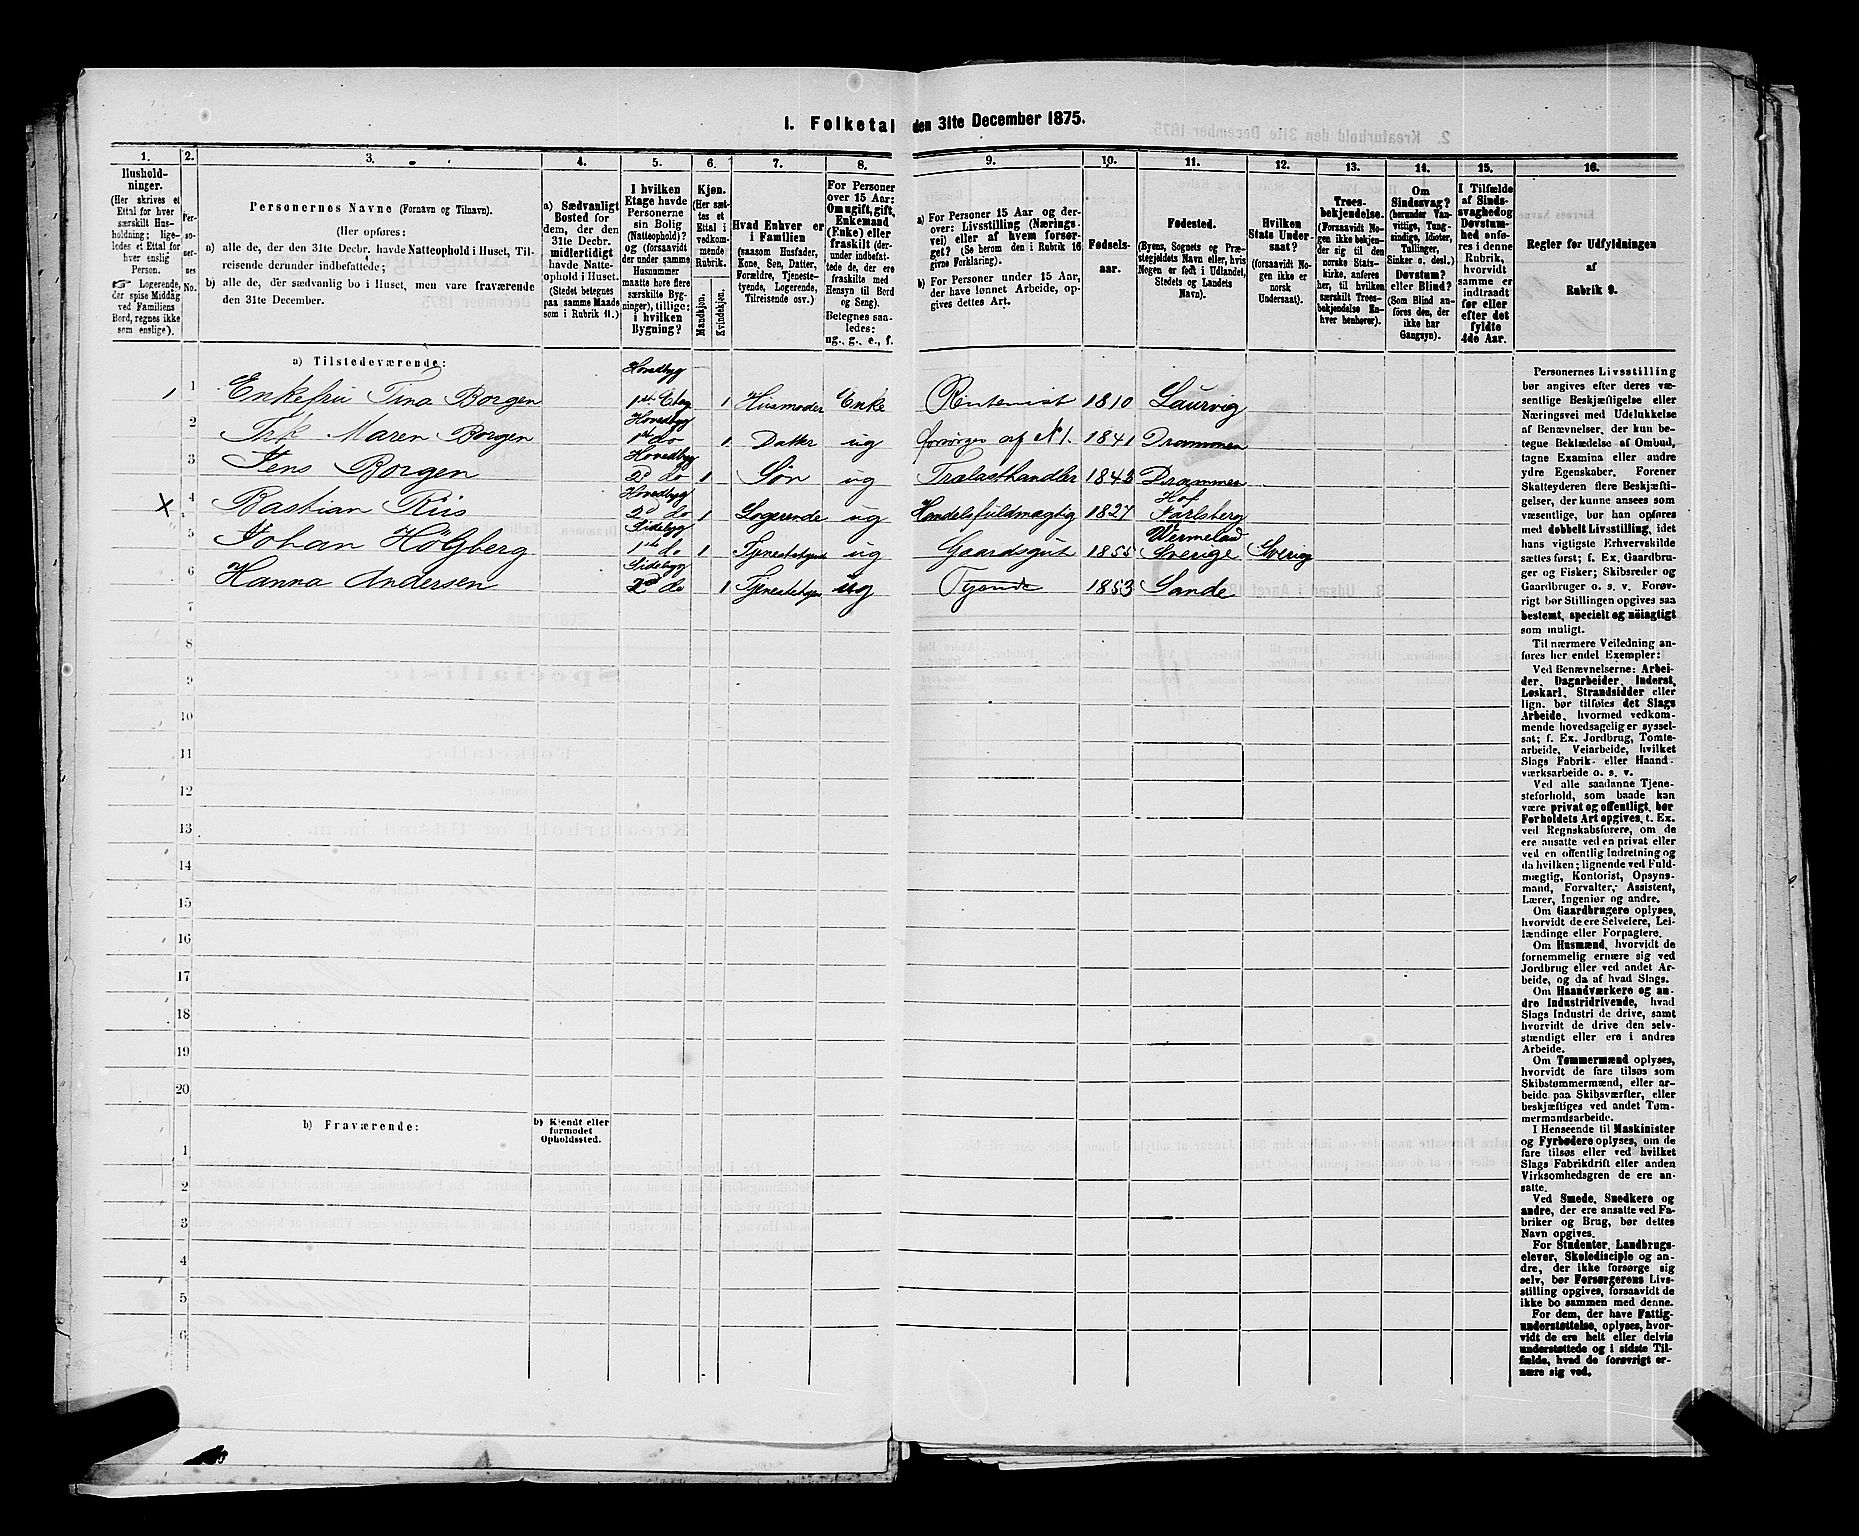 I. Folketal den 31te December 1875.
1. 2. 3. 4. 5. 6. 7. 8. 9. 10. 11. 12. 13. 14. 15. 16.
Husholdninger.
(Her skrives et
Ettal for hver
særskilt Husholdning;
ligeledes et Ettal for
hver enslig
Person.
☞ Logerende,
der spise Middag
ved Familiens
Bord, regnes ikke
som enslige).
Personernes No.
Personernes Navne (Fornavn og Tilnavn).
(Her opføres:
a) alle de, der den 31te Decbr. havde Natteophold i Huset, Tilreisende
derunder indbefattede;
b) alle de, der sædvanlig bo i Huset, men vare fraværende
den 31te December.
a) Sædvanligt
Bosted for
dem, der den
31te Decbr.
midlertidigt
havde Natteophold
i Huset.
(Stedet betegnes
paa samme Maade
som i Rubrik 11.)
I hvilken
Etage havde
Personerne
sin Bolig
(Natteophold)?
og (forsaavidt
der under samme
Husnummer
maatte høre flere
særskilte Bygninger),
tillige:
i hvilken
Bygning?
Kjøn.
(Her sættes
et
Ettal i
vedkommende
Rubrik.
Mandkjøn.
Kvindekjøn.
Hvad Enhver er
i Familien
(saasom Husfader,
Kone, Søn, Datter,
Forældre, Tjenestetyende,
Logerende,
Tilreisende osv.)
For Personer
over 15 Aar:
Om ugift, gift,
Enkemand
(Enke) eller
fraskilt (derunder
indbefattede
de, der ere
fraskilte med
Hensyn til Bord
og Seng).
Betegnes saaledes:
ug., g., e., f.
a) For Personer 15 Aar og derover:
Livsstilling (Næringsvei)
eller af hvem forsørget?
(Se herom den i Rubrik 16
givne Forklaring).
b) For Personer under 15 Aar,
der have lønnet Arbeide, opgives
dettes Art.
Fødselsaar.
Fødested.
(Byens, Sognets og Præstegjeldets
Navn eller, hvis
Nogen er født i Udlandet,
Stedets og Landets
Navn).
Hvilken
Stats Undersaat?
(forsaavidt Nogen
ikke er
norsk
Undersaat).
Troesbekjendelse.
(Forsaavidt Nogen
ikke bekjender
sig til den
norske Statskirke,
anføres
her, til hvilken
særskilt Troesbekjendelse
Enhver
henhører).
Om
Sindssvag?
(herunder Vanvittige,
Tungsindige,
Idioter,
Tullinger,
Sinker o. desl.)
Døvstum?
eller Blind?
(Som Blind anføres
den, der
ikke har
Gangsyn).
I Tilfælde
af Sindssvaghed
og
Døvstumhed
anføres
i denne
Rubrik,
hvorvidt
samme er
indtraadt
før eller
efter det
fyldte
4de Aar.
Regler for Udfyldningen
af
Rubrik 9.
a) Tilstedeværende:
1 1 Enkefru Tina Borgen Hovedbyg 1ste Etag 1 Husmoder Enke Rentenist 1810 Laurvig
2 Frk Maren Borgen Hovedbyg 1ste do 1 Datter ug forsørges af N1. 1841 Drammen
3 Jens Borgen Hovedbyg 2d do 1 Søn ug Trælasthandler 1843 Drammen
X 4 Bastian Riis Hovedbyg 2d do 1 Logerende ug Handelsfuldmægtig 1827 Hof Jarlsberg
5 Johan Högberg Sidebyg 1ste do 1 Tjenestetyende ug Gaardsgut 1855 Wermeland Sverige Sverig
6 Hanna Andersen Sidebyg 2d do 1 Tjenestetyen ug Tyende 1853 Sande
7
8
9
10
11
12
13
14
15
16
17
18
19
20
b) Fraværende:
b) Kjendt eller
formodet
Opholdssted.
1
2
3
4
5
6
Personernes Livsstilling
bør angives efter deres væsentlige
Beskjæftigelse eller
Næringsvei med Udelukkelse
af Benævnelser, der kun betegne
Beklædelse af Ombud,
tagne Examina eller andre
ydre Egenskaber. Forener
Skatteyderen flere Beskjæftigelser,
der kunne ansees som
væsentlige, bør han opføres
med dobbelt Livsstilling, idet
hans vigtigste Erhvervskilde
sættes først; f. Ex. Gaardbruger
og Fisker; Skibsreder og
Gaardbruger o. s. v. Forøvrigt
bør Stillingen opgives saa
bestemt, specielt og nøiagtigt
som muligt.
Til nærmere Veiledning anføres
her endel Exempler:
Ved Benævnelserne: Arbeider,
Dagarbeider, Inderst,
Løskarl, Strandsidder eller
lign. bør tilføies det Slags
Arbeide, hvormed vedkommende
hovedsagelig er sysselsat;
f. Ex. Jordbrug, Tomtearbeide,
Veiarbeide, hvilket
Slags Fabrik- eller Haandværksarbeide
o. s. v.
Ved alle saadanne Tjenesteforhold,
som baade kan
være privat og offentligt, bør
Forholdets Art opgives, t. Ex.
ved Regnskabsførere, om de
ere ansatte ved en privat eller
ved en offentlig Indretning og
da hvilken; lignende ved Fuldmægtig,
Kontorist, Opsynsmand,
Forvalter, Assistent,
Lærer, Ingeniør og andre.
Om Gaardbrugere oplyses,
hvorvidt de ere Selveiere, Leilændinge
eller Forpagtere.
Om Husmænd, hvorvidt de
fornemmelig ernære sig ved
Jordbrug eller ved andet Arbeide,
og da af hvad Slags.
Om Haandværkere og andre
Industridrivende, hvad
Slags Industri de drive, samt
hvorvidt de drive den selvstændigt
eller ere i andres
Arbeide.
Om Tømmermænd oplyses,
hvorvidt de fare tilsøs som
Skibstømmermænd, eller arbeide
paa Skibsværfter, eller
beskjæftiges ved andet Tømmermandsarbeide.
I Henseende til Maskinister
og Fyrbødere oplyses, om de
fare tilsøs eller ved hvilket
Slags Fabrikdrift eller anden
Virksomhedsgren de ere ansatte.
Ved Smede, Snedkere og
andre, der ere ansatte ved Fabriker
og Brug, bør dettes
Navn opgives.
For Studenter, Landbrugselever,
Skoledisciple og andre,
der ikke forsørge sig
selv, bør Forsørgerens Livsstilling
opgives, forsaavidt de
ikke bo sammen med denne.
For dem, der have Fattigunderstøttelse,
oplyses, hvorvidt
de ere helt eller delvis
understøttede og i sidste Tilfælde,
hvad de forøvrigt ernære
sig ved.